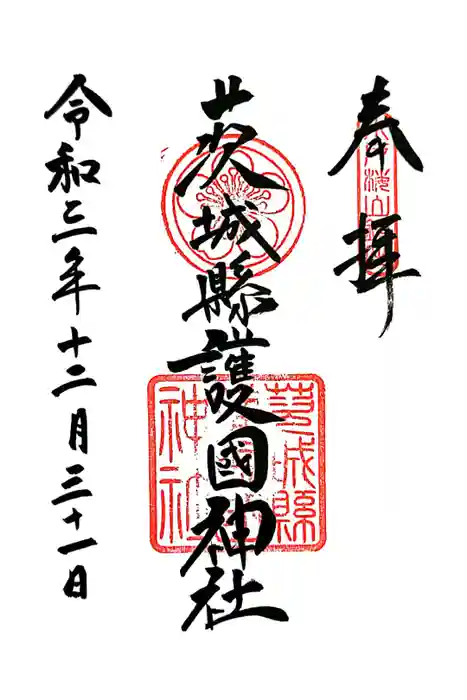 奉拝
茨城縣護國神社
令和三年十二月三十一日
茨城縣
神社